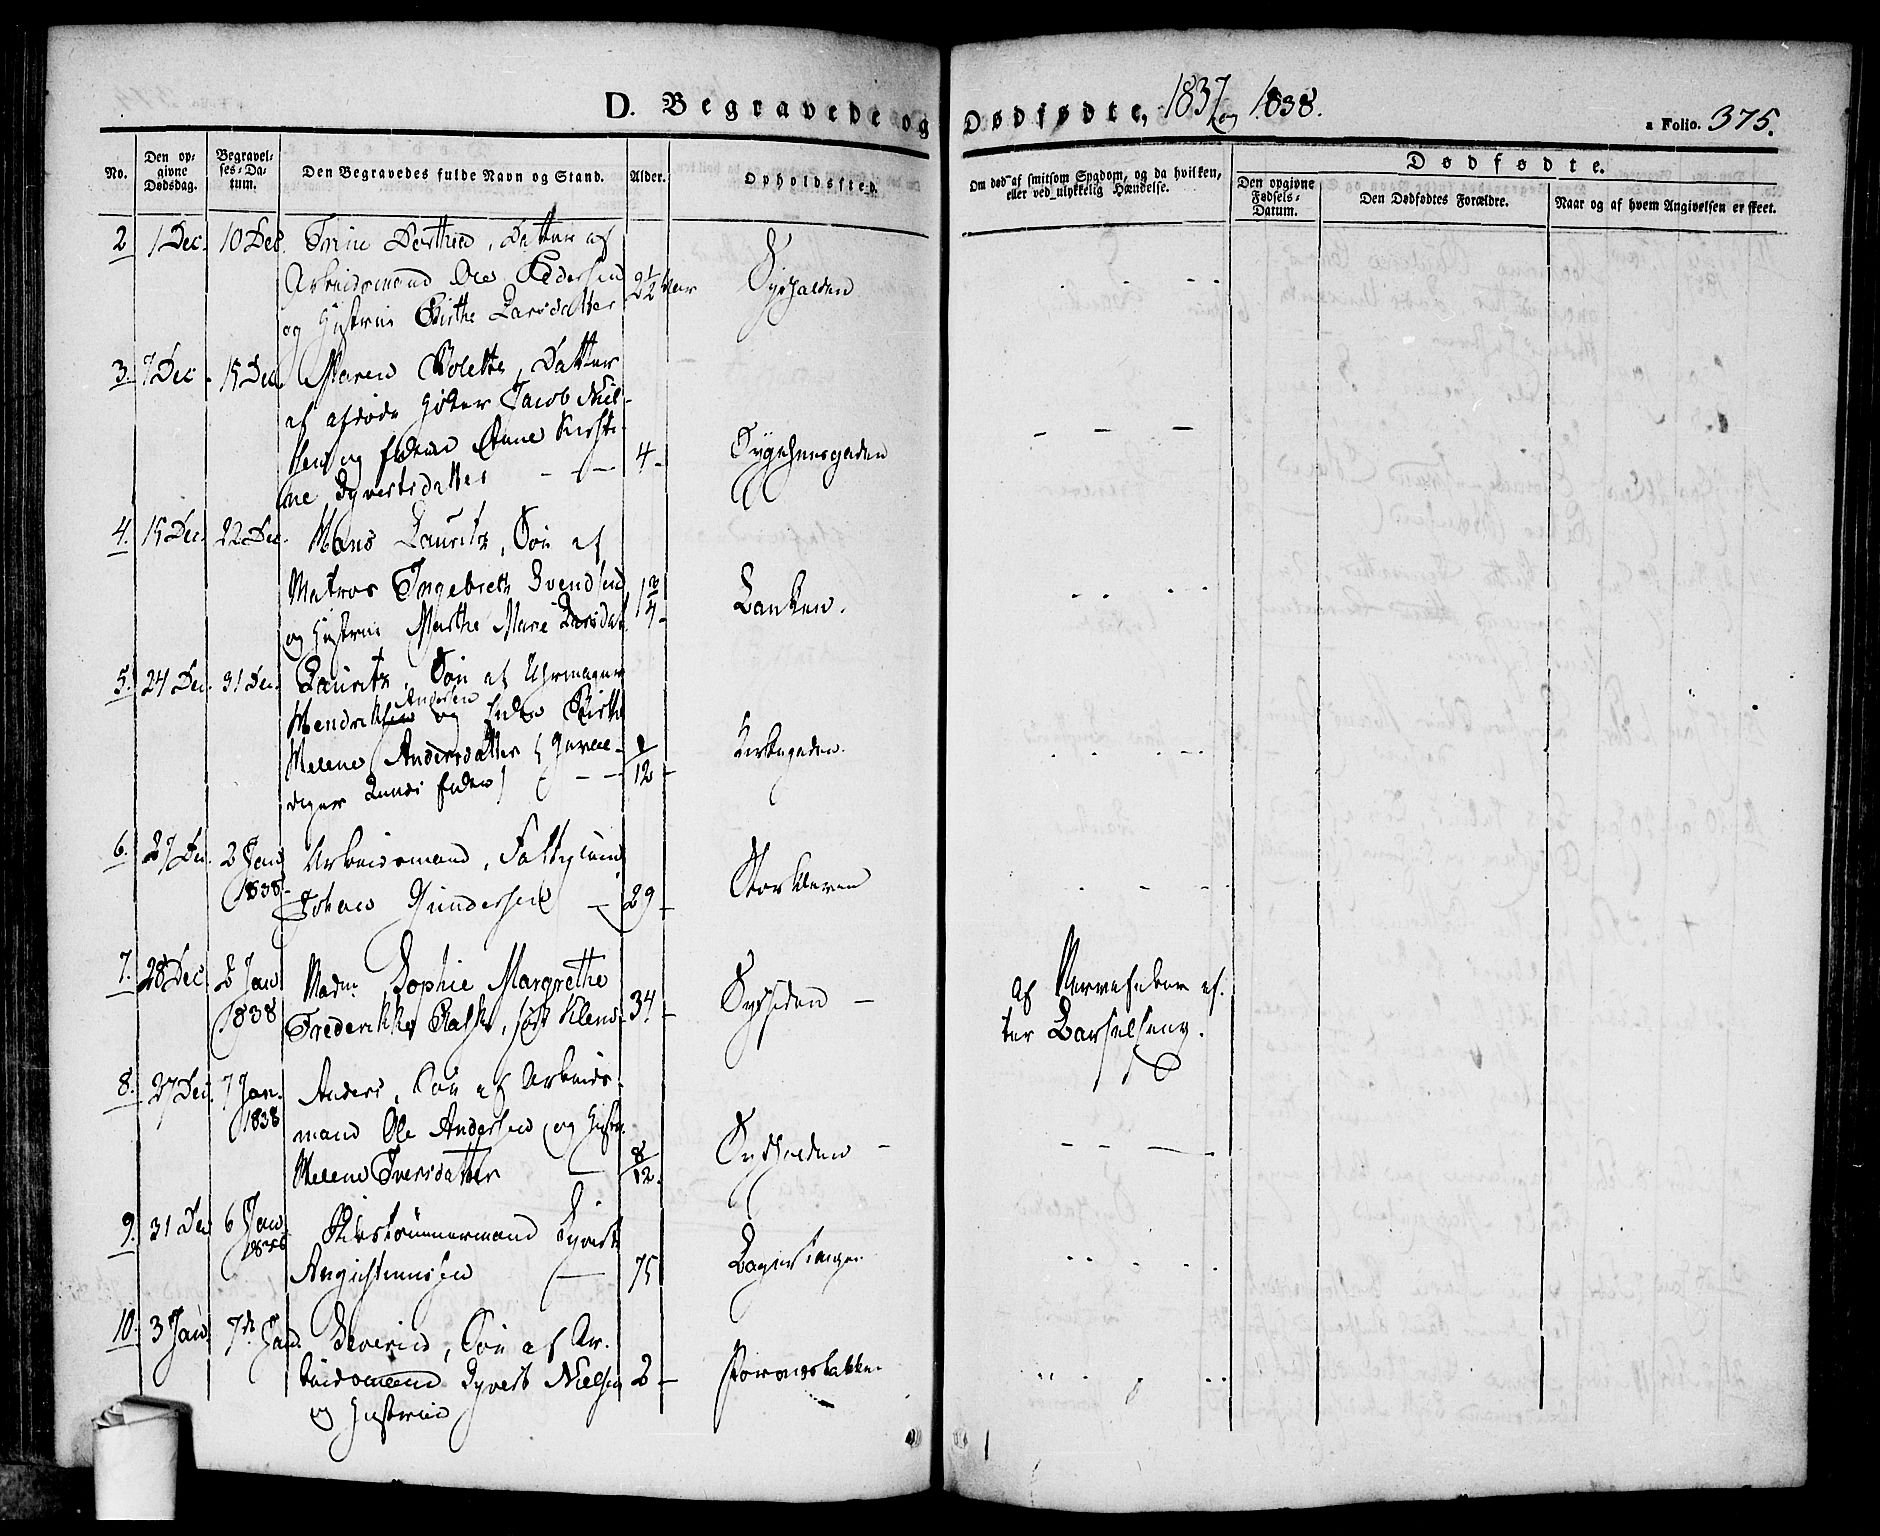 D. Begravede og Dødfødte, 1837 og 1838.
a Folio. 375.
No.
Den op-
givne
Dødsdag.
Begravel-
ses-Da-
tum.
Den Begravedes fulde Navn og Stand.
Alder.
Opholdssted.
Om død af smitsom Sygdom, og da hvilken,
eller ved ulykkelig Hændelse.
Dødfødte.
Den opgivne
Fødsels-
Datum.
Den Dødfødtes Forældre.
Naar og af hvem Angivelsen er skeet.
2 1 Dec. 10 Dec. Trine Dorthea, Datter af
Arbeidsmand Ole Pedersen 2 1/2 Aar
og Hustrue Birthe Larsdatter
3. 7 Dec. 15 Dec. Maren Bolette, Datter
af afdøde Høker Jacob Niel-
sen og Enken Anne Kirsti-
ne Syvertsdatter - - 4 - Sygehuusgaden
4. 15 Dec. 22 Dec. Hans Lauritz, Søn af
Matros Ingebreth Svendsen 1 3/4 - Banken.
og Hustrue Marthe Marie Larsdat.
5. 24 Dec. 31 Dec. Lauritz, Søn af Uhrmager
Andersen
Hendriksen og Enken Birthe
Helene Andersdatter ( 
Enken) - - /12 - Kirkegaden.
6. 27 Dec. 2 Jan 1838. Arbeidsmand,
Johan Gundersen - 29 -
7. 28 Dec. 2 Jan 1838 Madm. Sophie Margrethe
Frederikke Rask, født Klems 34 - Sydsiden -
af Nervefeber ef-
ter Barselseng.
8. 27 Dec. 7 Jan. 1838 Anders, Søn af Arbeids-
mand Ole Andersen og Hustr.
Helene Iversdatter - 8/12. -
9. 31 Dec 6 Jan 1838 Skibstømmermand Syvert
- 75
10. 3 Jan. 7de Jan. Severin, Søn af Ar-
beidsmand Syvert Nielsen 2 -
og Hustrue